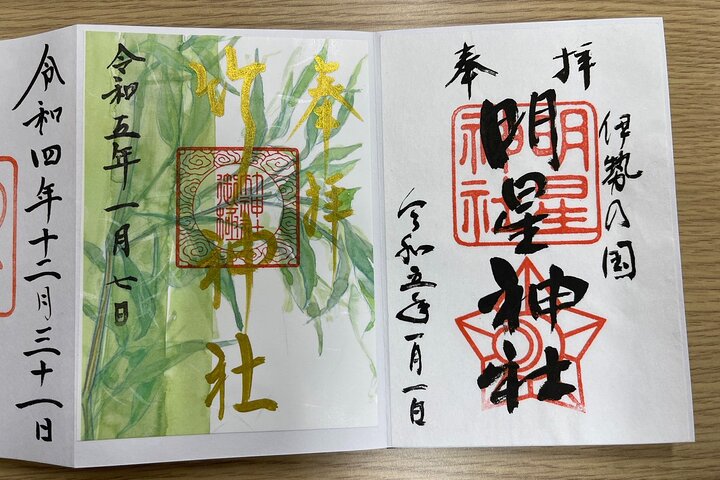 伊勢の国
奉拝
明星神社
明星
神社
令和五年一月一日
奉拝
竹神社
令和五年一月七日
令和四年十二月三十一日